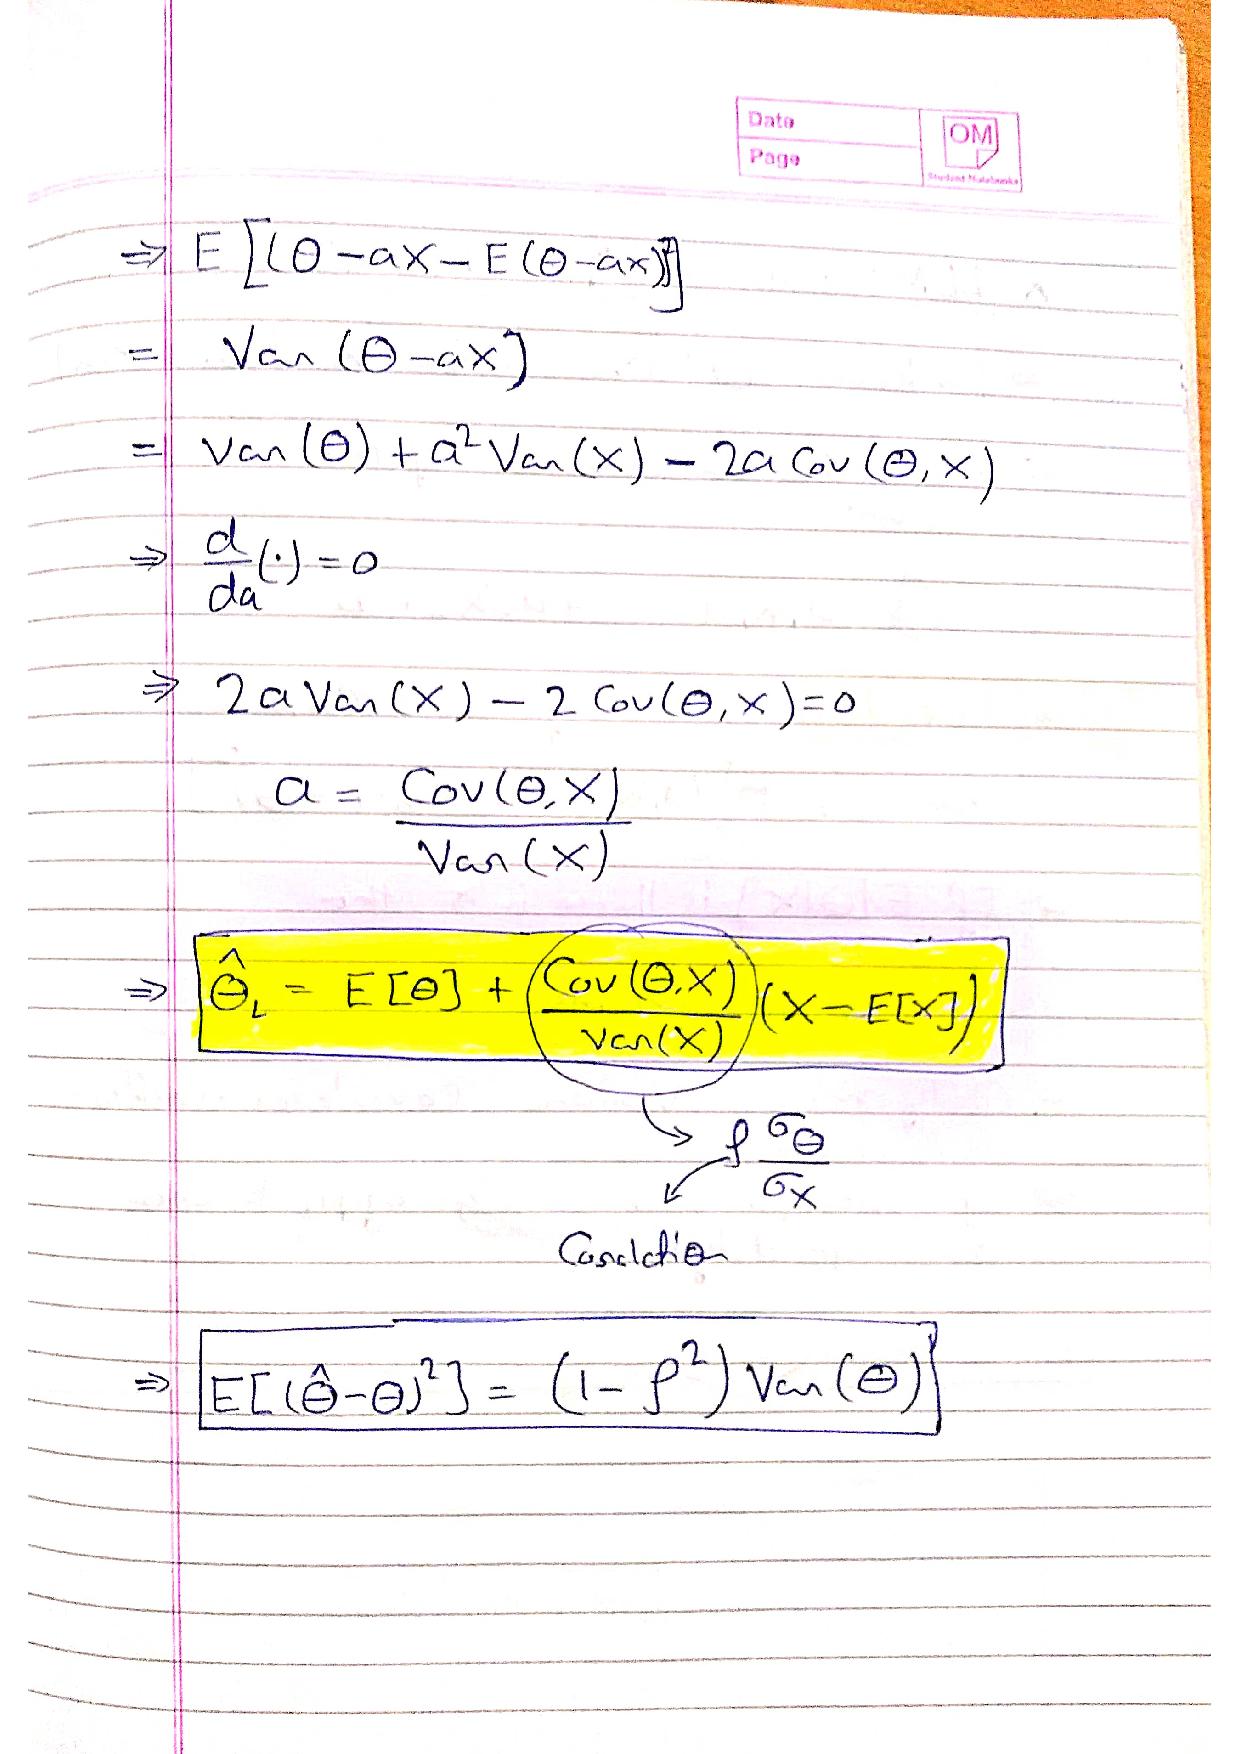 Date
Page
OM
Student Notebooks
⇒ E[(Θ-aX-E(Θ-ax))²]
= Var(Θ-aX)
= Var(Θ) + a² Var(X) - 2a Cov(Θ, X)
⇒ d/da (·) = 0
⇒ 2a Var(X) - 2 Cov(Θ, X) = 0
a = Cov(Θ, X) / Var(X)
⇒ Θ̂_L = E[Θ] + Cov(Θ, X) / Var(X) (X - E[X])
→ ρ σ_Θ / σ_X
Correlation
⇒ E[(Θ̂-Θ)²] = (1-ρ²) Var(Θ)